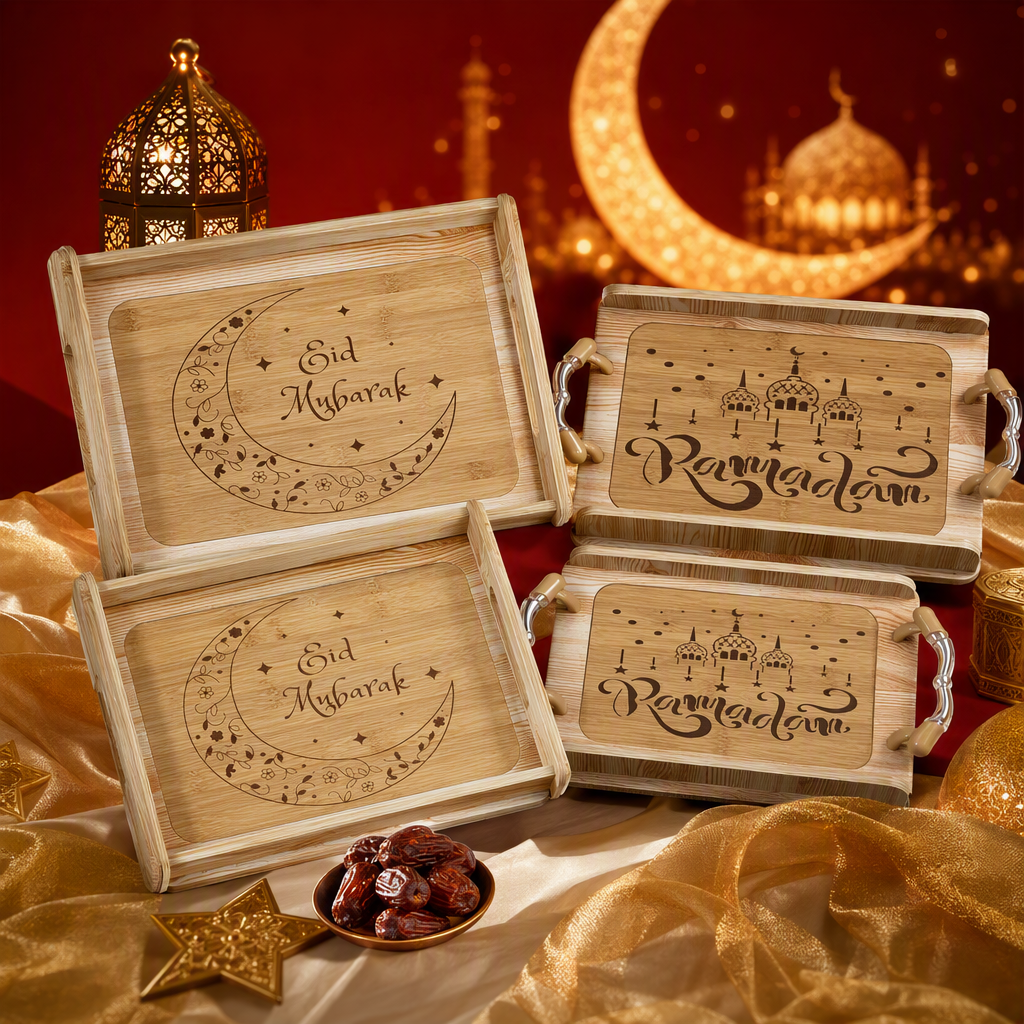 Eid
Mubarak
Ramadan
Eid
Mubarak
Ramadan